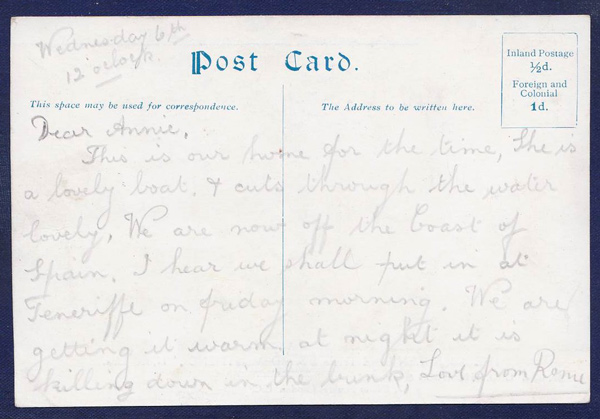 Wednesday 6th
12 o'clock.
Post Card.
Inland Postage
½d.
Foreign and
Colonial
1d.
This space may be used for correspondence.
The Address to be written here.
Dear Annie,
This is our home for the time, She is
a lovely boat, & cuts through the water
lovely, We are now off the Coast of
Spain. I hear we shall put in at
Teneriffe on friday morning. We are
getting it warm at night it is
killing down in the bunk, Love from